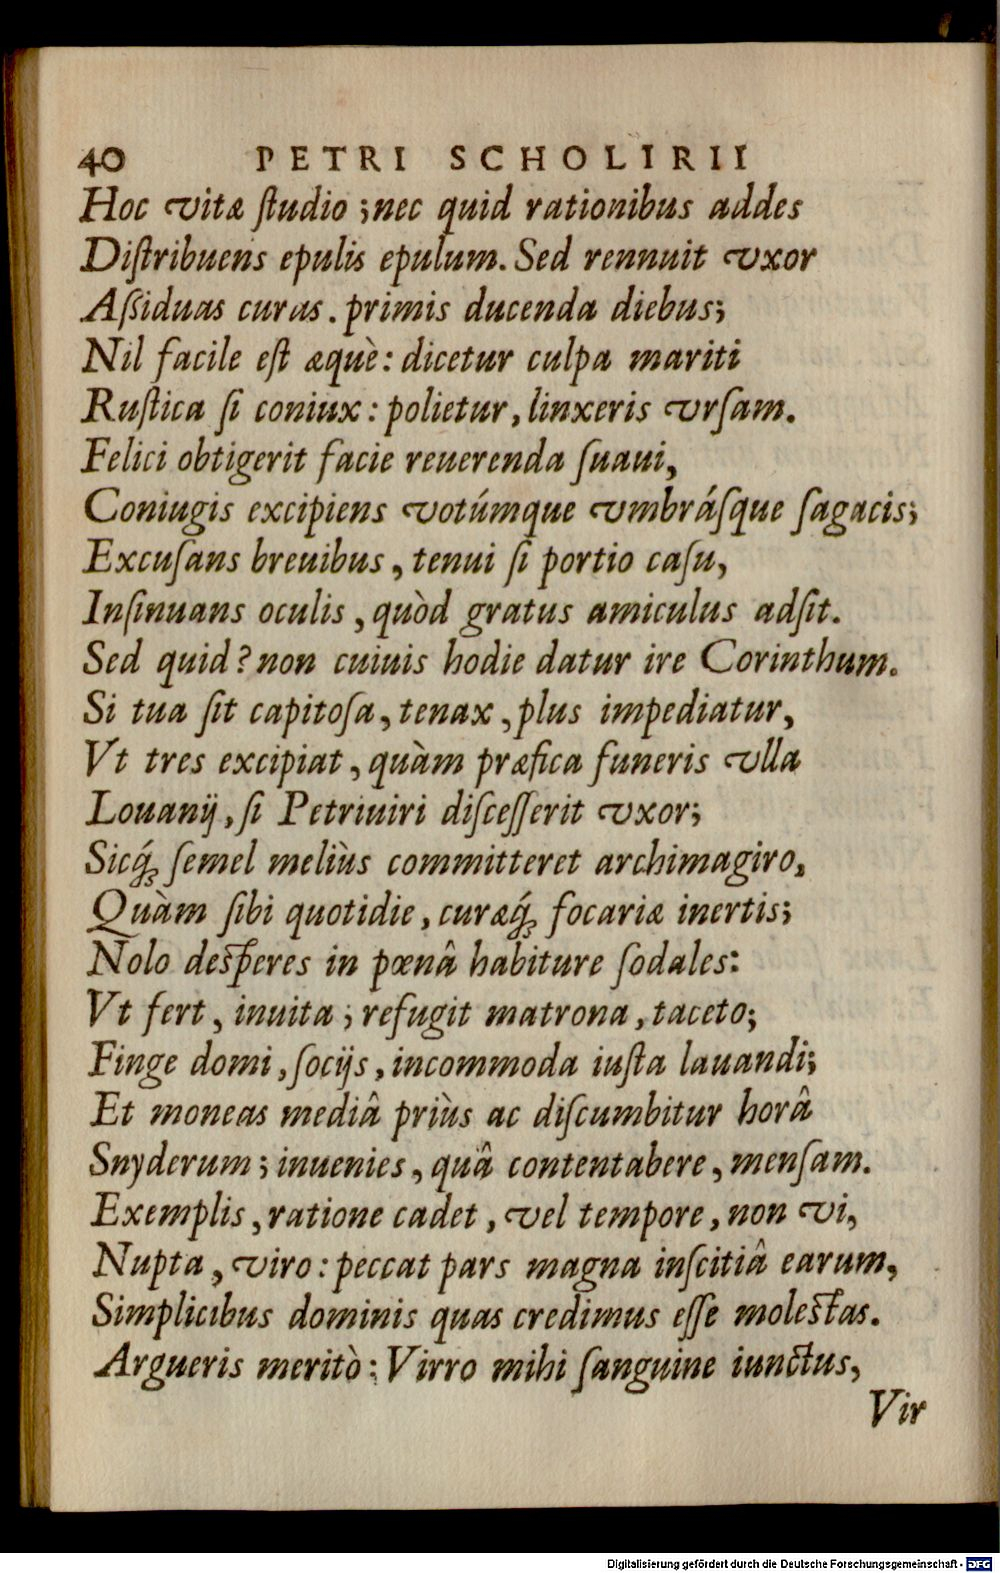 40 PETRI SCHOLIRII
Hoc vitæ ſtudio ; nec quid rationibus addes
Diſtribuens epulis epulum. Sed rennuit vxor
Aſsiduas curas. primis ducenda diebus;
Nil facile eſt æquè: dicetur culpa mariti
Ruſtica ſi coniux: polietur, linxeris vrſam.
Felici obtigerit facie reuerenda ſuaui,
Coniugis excipiens votúmque vmbráſque ſagacis;
Excuſans breuibus, tenui ſi portio caſu,
Inſinuans oculis, quòd gratus amiculus adſit.
Sed quid? non cuiuis hodie datur ire Corinthum.
Si tua ſit capitoſa, tenax, plus impediatur,
Vt tres excipiat, quàm præfica funeris vlla
Louanij, ſi Petriuiri diſceſſerit vxor;
Sicq́ꝫ ſemel meliùs committeret archimagiro,
Quàm ſibi quotidie, curæq́ꝫ focariæ inertis;
Nolo deſperes in pœnâ habiture ſodales:
Vt fert, inuita; refugit matrona, taceto;
Finge domi, ſocijs, incommoda iuſta lauandi;
Et moneas mediâ priùs ac diſcumbitur horâ
Snyderum; inuenies, quâ contentabere, menſam.
Exemplis, ratione cadet, vel tempore, non vi,
Nupta, viro: peccat pars magna inſcitiâ earum,
Simplicibus dominis quas credimus eſſe moleſtas.
Argueris meritò: Virro mihi ſanguine iunctus,
Vir
Digitalisierung gefördert durch die Deutsche Forschungsgemeinschaft - DFG